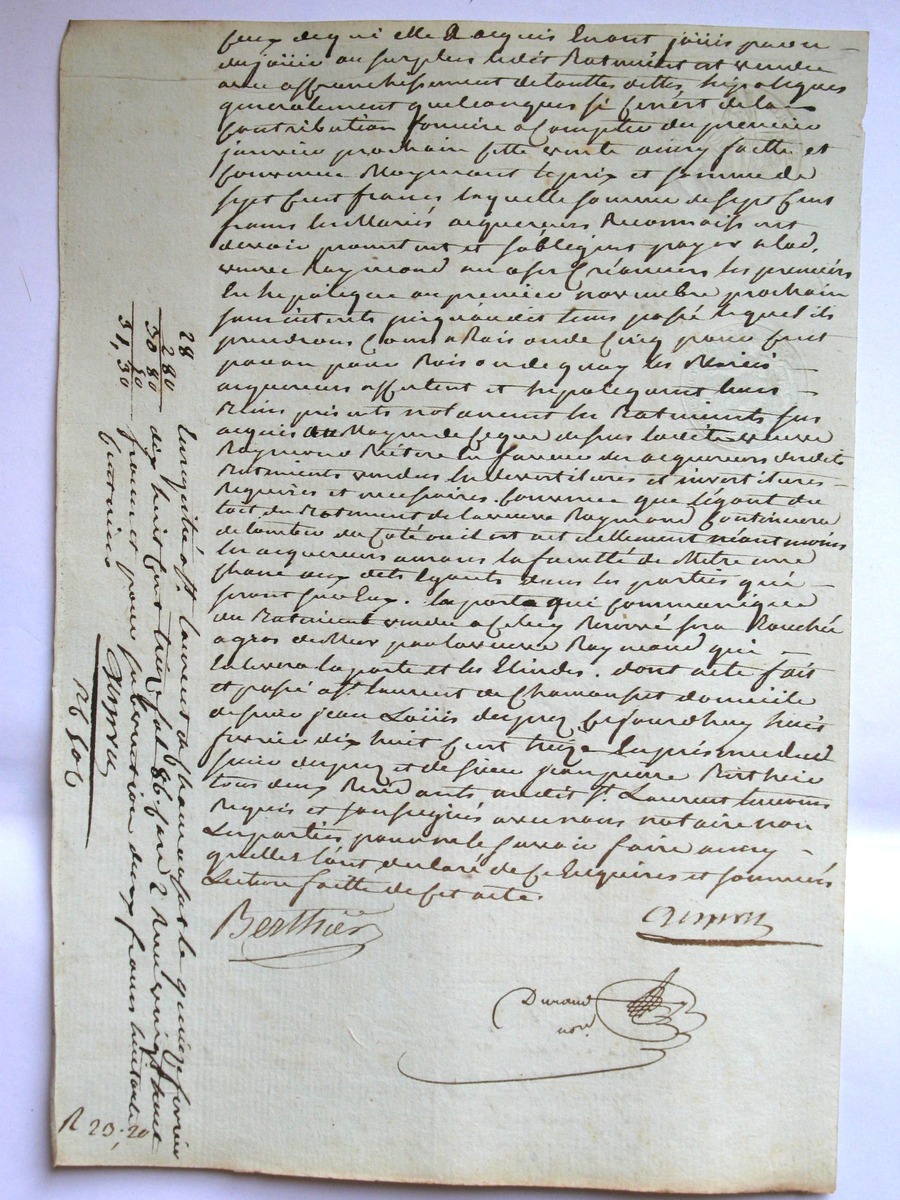 ceux de qui elle a acquis l'auront jouis pu ou
du jouir au surplus ledit Batiment est vendu
avec affranchissement de touttes dettes, hipoteques
generalement quelconques si ce n'est de la
contribution fonciere a compter du premier
janvier prochain cette vente ainsy faitte et
convenue moyenant le prix et somme de
sept cent francs laquelle somme de sept cent
francs les mariés acquereurs reconnaissent
devoir promettent et s'obligent payer a lad.
veuve Raymond ou a ses créanciers les premiers
en hipoteque au premier novembre prochain
sans interets jusqu'audit tems passé lequel ils
prendront cours a raison de cinq pour cent
par an pour raison de quoy les mariés
acquereurs affectent et hipotequent leurs
biens présents notament les Batiments sus
acquis au moyen de ce que dessus ladite veuve
Raymond en faveur des acquereurs desdits
Batiments vendus les devertitures et invertitures
requises et necessaires. convenu que l'égout du
toit du Batiment de la veuve Raymond continuera
de tomber du coté ou il est actuellement néantmoins
les acquereurs auront la faculté de mettre une
aux dits égouts dans les parties qui
seront sur eux. la porte qui communique
du Batiment vendu a celuy reservé sera bouchée
a gros de mur par la veuve Raymond qui
enlevera la porte et les. dont acte fait
et passé a St Laurent de Chamousset domicile
de sieur jean Loüis dupuy cejourdhuy huit
fevrier dix huit cent treize en presence dud
sieur dupuy et de sieur jean pierre Berthier
tous deux residants audit St Laurent temoins
requis et soussignés avec nous notaire non
les parties pour ne le savoir faire ainsy
qu'elles l'ont declaré de ce enquises et sommées
Lecture faitte de cet acte.
Berthier
Dupuy
Durand
nore.
28
2 80
30 80
50
31, 30
Enregistré a St. Laurent de Chamousset le quinze fevrier
dix huit cent treize fol. 86. case 2 Reçu vingt huit
francs et pour subvention deux francs huitante
centimes
n° 606
R 23, 20